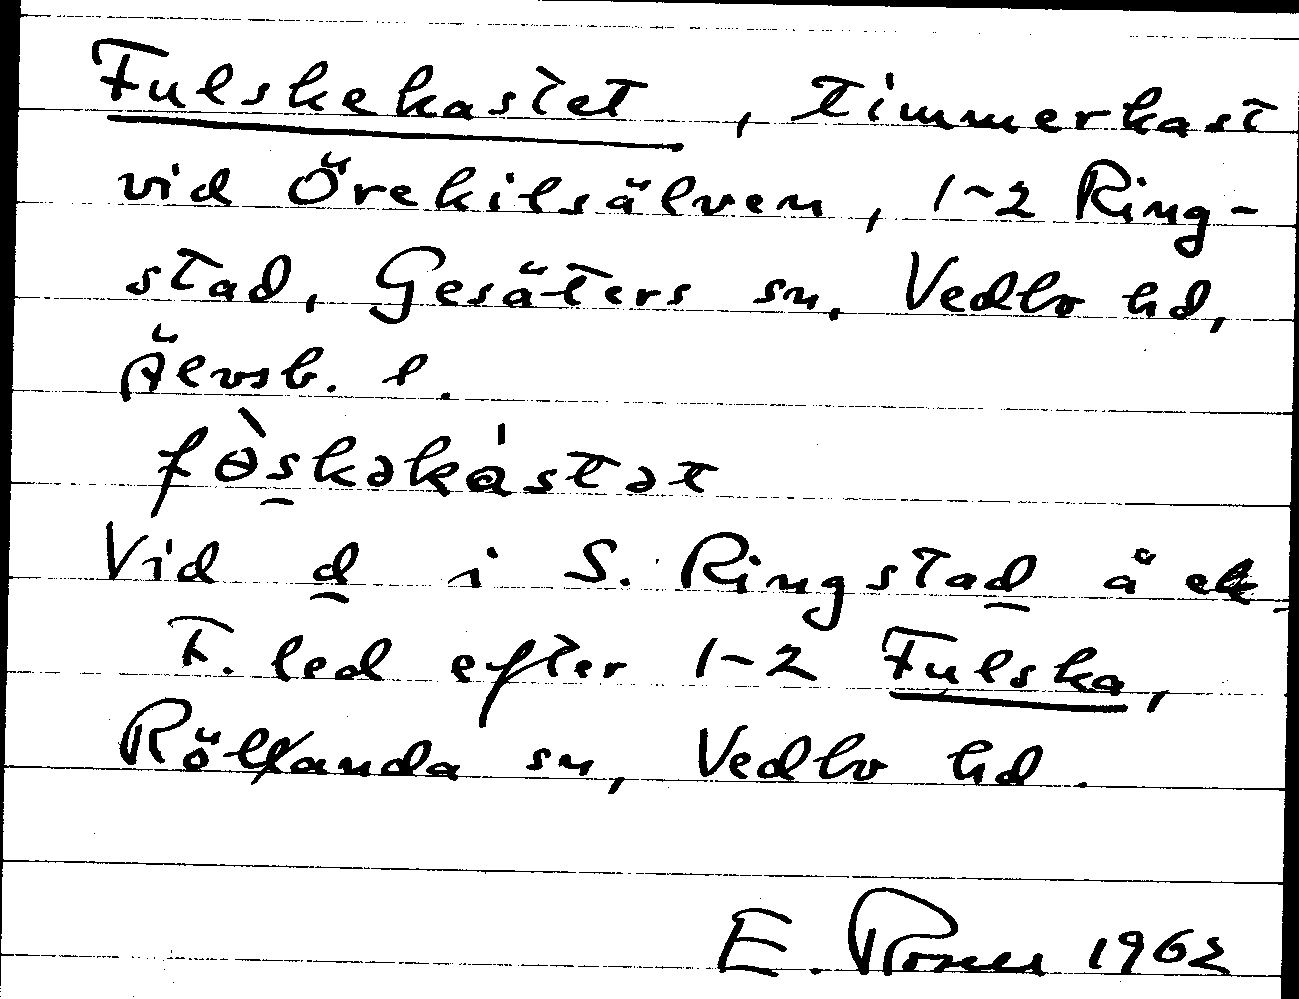 Fulskekastet, timmerkast
vid Örekilsälven, 1-2 Ring-
stad, Gesäters sn, Vedbo hd,
Älvsb. l.
fòskəkástət
Vid d i S. Ringstad å ek.
F. led efter 1-2 Fulska,
Rölanda sn, Vedbo hd.
E. 1962